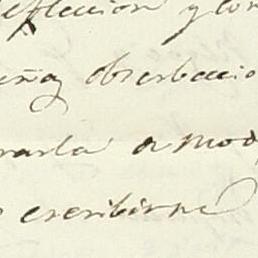 reflecsion y con
eña obserbacio
rarla a mod
escribirne